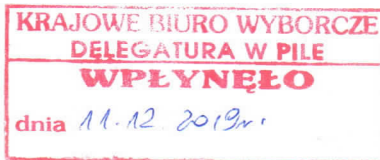 KRAJOWE BIURO WYBORCZE
DELEGATURA W PILE
WPŁYNĘŁO
dnia 11.12.2019r.